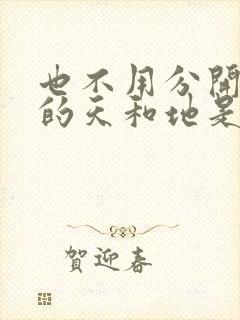 也不用分開
的天和地是
賀迎春